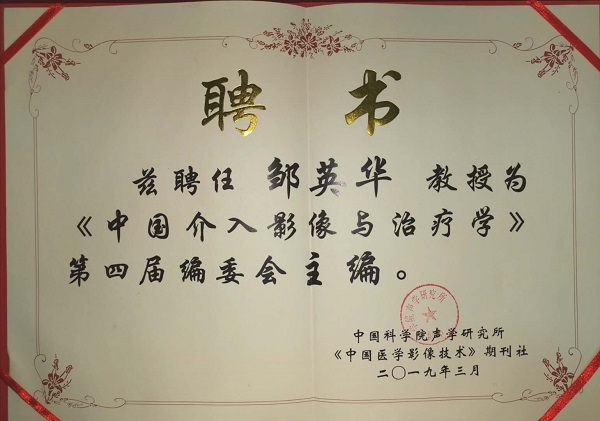 聘书
兹聘任 邹英华 教授为
《中国介入影像与治疗学》
第四届编委会主编。
中国科学院声学研究所
《中国医学影像技术》期刊社
二〇一九年三月